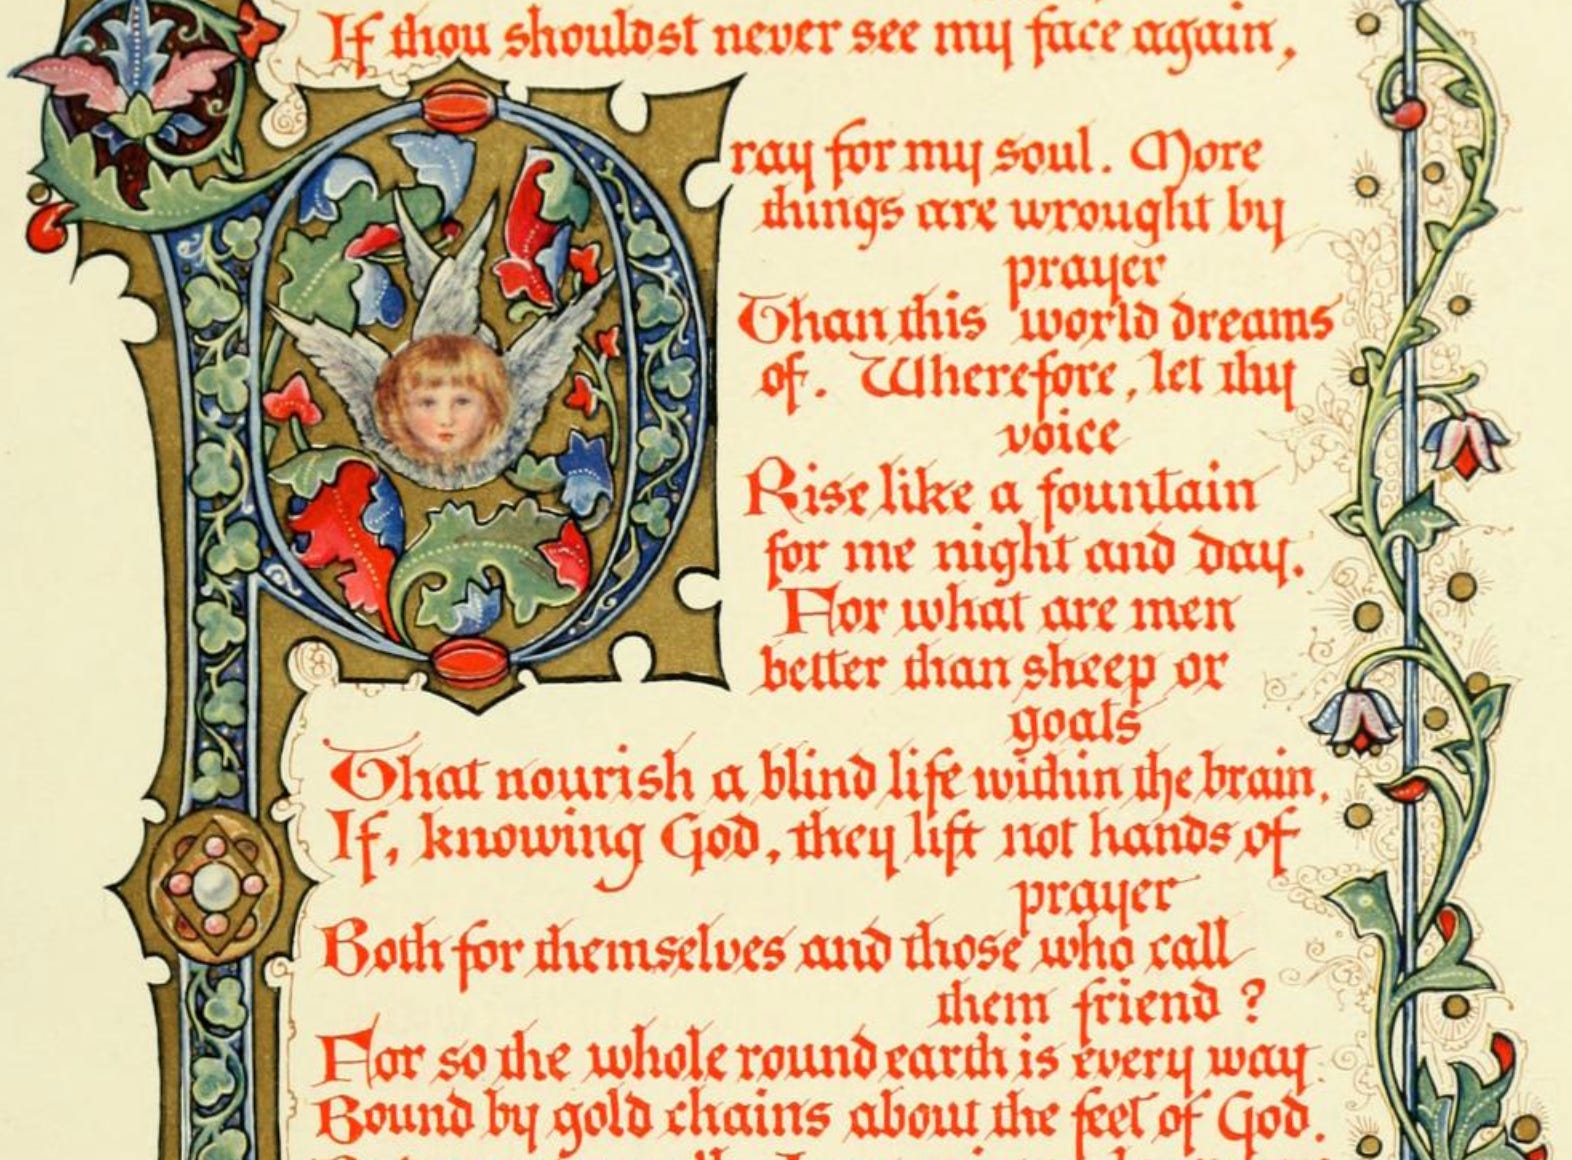 If thou shouldst never see my face again,
Pray for my soul. More
things are wrought by
prayer
Than this world dreams
of. Wherefore, let thy
voice
Rise like a fountain
for me night and day.
For what are men
better than sheep or
goats
That nourish a blind life within the brain,
If, knowing God, they lift not hands of
prayer
Both for themselves and those who call
them friend?
For so the whole round earth is every way
Bound by gold chains about the feet of God.